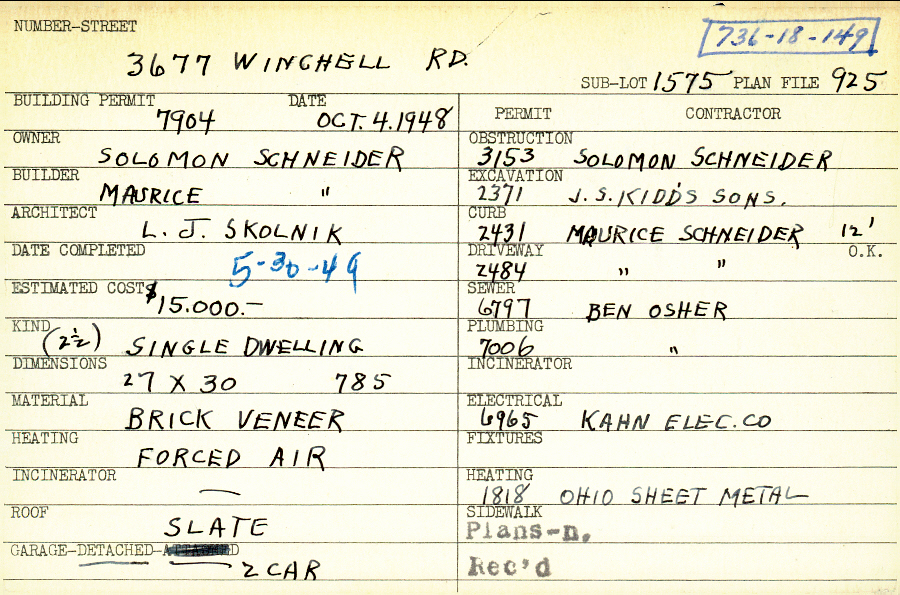 NUMBER-STREET
736-18-149
3677 WINCHELL RD.
SUB-LOT 1575 PLAN FILE 925
BUILDING PERMIT DATE
7904 OCT. 4.1948
OWNER
SOLOMON SCHNEIDER
BUILDER
MAURICE "
ARCHITECT
L. J. SKOLNIK
DATE COMPLETED
5-30-49
ESTIMATED COST
$15.000.—
KIND
(2½) SINGLE DWELLING
DIMENSIONS
27 X 30 785
MATERIAL
BRICK VENEER
HEATING
FORCED AIR
INCINERATOR
—
ROOF
SLATE
GARAGE-DETACHED-ATTACHED
2 CAR
PERMIT CONTRACTOR
OBSTRUCTION
3153 SOLOMON SCHNEIDER
EXCAVATION
2371 J.S. KIDD'S SONS.
CURB
2431 MAURICE SCHNEIDER 12'
DRIVEWAY O.K.
2484 " "
SEWER
6797 BEN OSHER
PLUMBING
7006 "
INCINERATOR
ELECTRICAL
6965 KAHN ELEC. CO
FIXTURES
HEATING
1818 OHIO SHEET METAL
SIDEWALK
Plans-n.
Rec'd